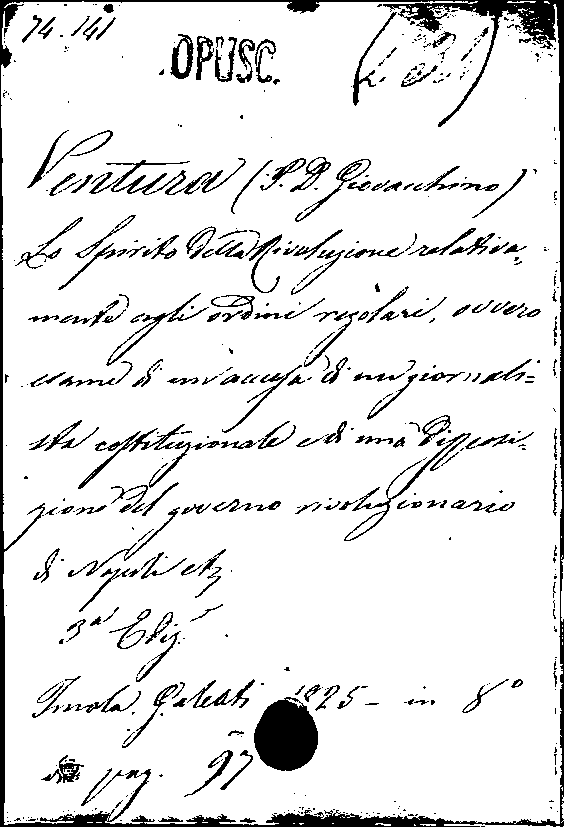 74.141
OPUSC.
Ventura (P. D. Giovacchino)
Lo Spirito della Rivoluzione relativa-
mente agli ordini regolari, ovvero
esame di un'accusa di un giornali=
sta costituzionale e di una disposi-
zione del governo rivoluzionario
di Napoli etc.
3ª Ediz.
Imola. Galeati 1825 - in 8º
di pag. 97